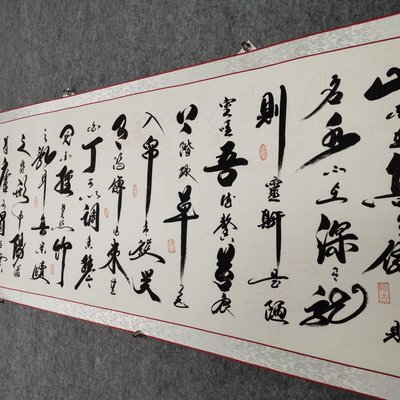 山不在高有仙
名水不在深有龍
則靈斯是陋
室唯吾德馨苔痕
上階綠草色
入帘青談笑
有鴻儒往来無
白丁可以調素琴
閱金經無絲竹
之亂耳無案牘
之勞形南陽諸
葛廬西蜀子雲